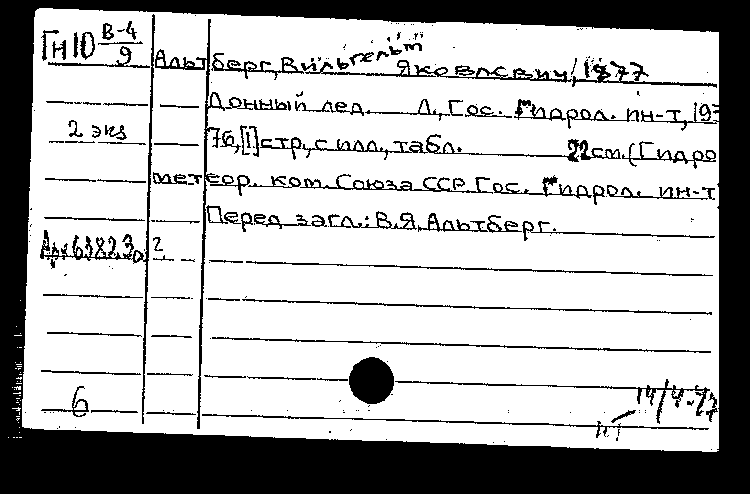 Гн10 В-4/9
Альтберг, Вильгельм
Яковлевич, 1877
Донный лед. Л., Гос. гидрол. ин-т, 193
2 экз
76,[1]стр., с илл., табл. 22см. (Гидро
метеор. ком. Союза ССР. Гос. гидрол. ин-т
Перед загл.: В.Я. Альтберг.
2
6
14/4-77